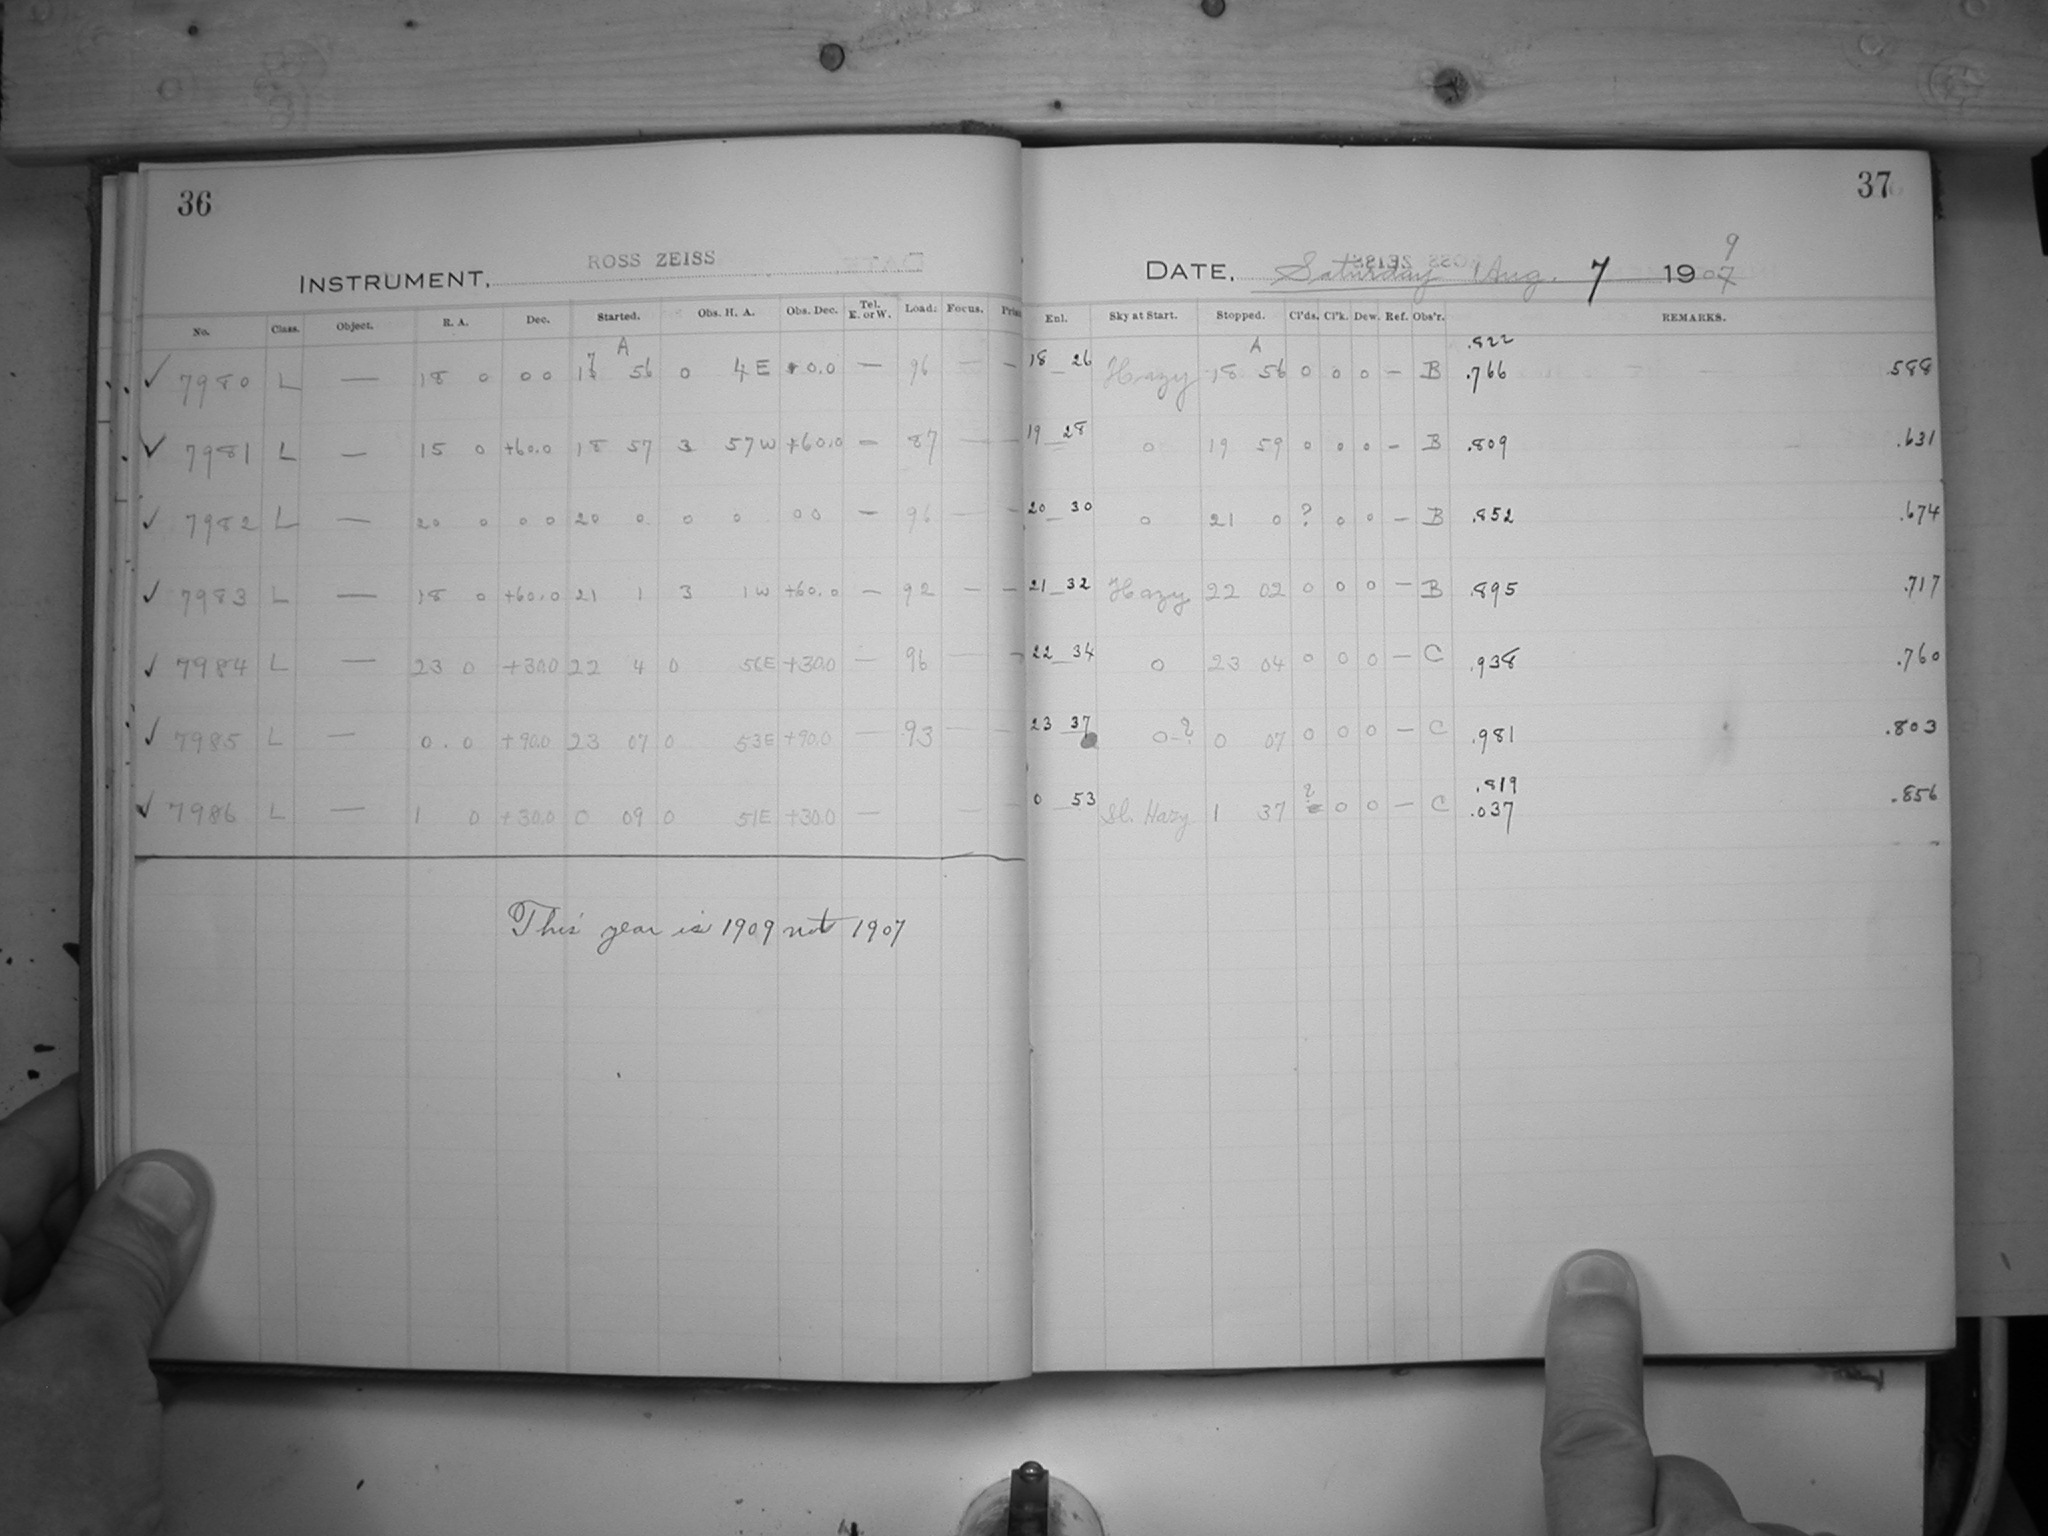 36
ROSS ZEISS
INSTRUMENT,
No. Class. Object. R. A. Dec. Started. Obs. H. A. Obs. Dec. Tel. E. or W. Load. Focus.
A
✓ 7980 L — 18 0 0 0 17 56 0 4 E 0.0 — 96 — —
✓ 7981 L — 15 0 +60.0 18 57 3 57 W +60.0 — 87 — —
✓ 7982 L — 20 0 0 0 20 0 0 0 0 0 — 96 — —
✓ 7983 L — 18 0 +60.0 21 1 3 1 W +60.0 — 92 — —
✓ 7984 L — 23 0 +30.0 22 4 0 56E +30.0 — 96 — —
✓ 7985 L — 0.0 +90.0 23 07 0 53E +90.0 — 93 — —
✓ 7986 L — 1 0 +30.0 0 09 0 51E +30.0 — — —
This year is 1909 not 1907
37
9
DATE, Saturday Aug. 7 1907
Enl. Sky at Start. Stopped. Cl'ds. Cl'k. Dew. Ref. Obs'r. REMARKS.
A .822
18 26 Hazy 18 56 0 0 0 — B .766 .588
19 28 0 19 59 0 0 0 — B .809 .631
20 30 0 21 0 ? 0 0 — B .852 .674
21 32 Hazy 22 02 0 0 0 — B .895 .717
22 34 0 23 04 0 0 0 — C .938 .760
23 37 0-? 0 07 0 0 0 — C .981 .803
? .819
0 53 Sl. Hazy 1 37 0 0 — C .037 .856